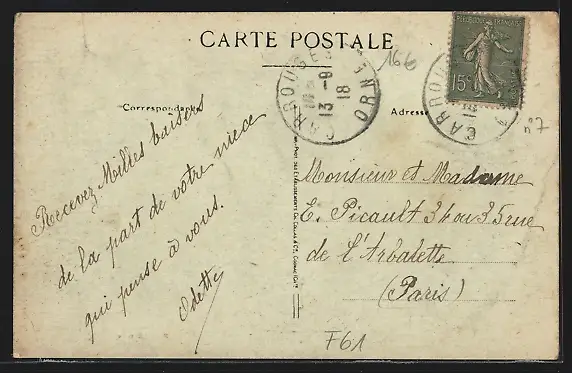 CARTE POSTALE
166
REPUBLIQUE FRANÇAISE
15c
CARROUGES
13 - 9
18
ORNE
Correspondance
Adresse
n°7
Recevez Milles baisers
de la part de votre niece
qui pense à vous.
Odette
Monsieur et Madame
E. Picault 34 ou 35 rue
de l'Arbalette
(Paris)
F61